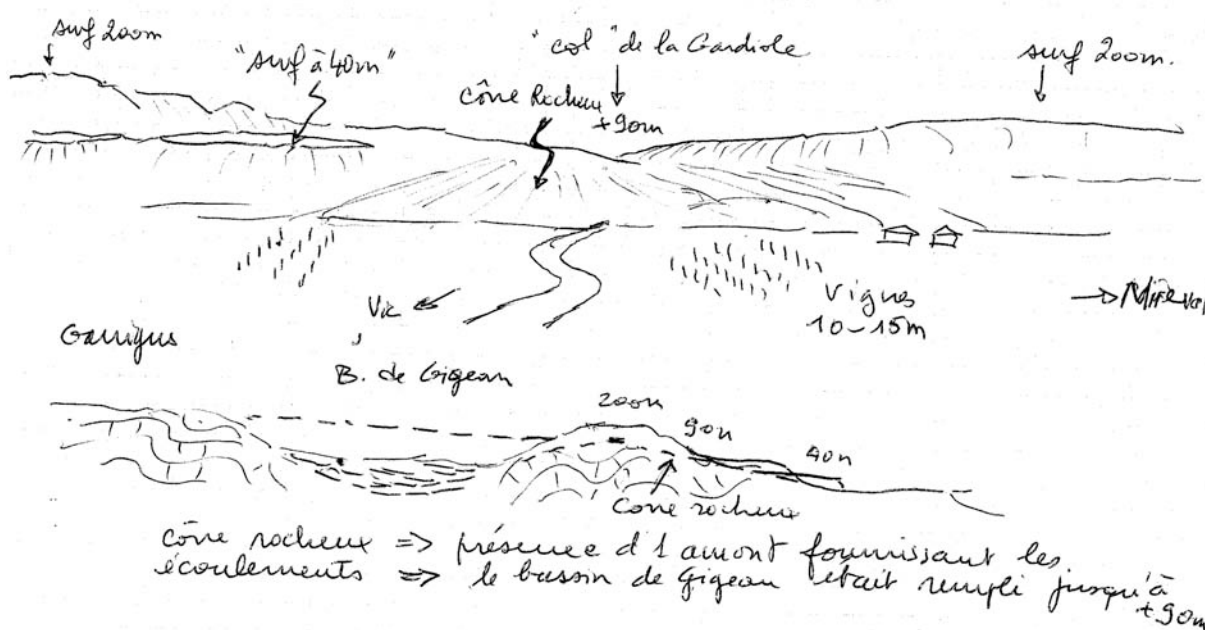 surf 200m
"surf à 40m"
"col" de la Gardiole
+90m
surf 200m.
cône Rocheux
Vic
Vignes
10-15m
Mireval
Garrigues
B. de Gigean
200m
90m
40m
Cone rocheux
cône rocheux => présence d'1 amont fournissant les
écoulements => le bassin de Gigean était rempli jusqu'à
+90m